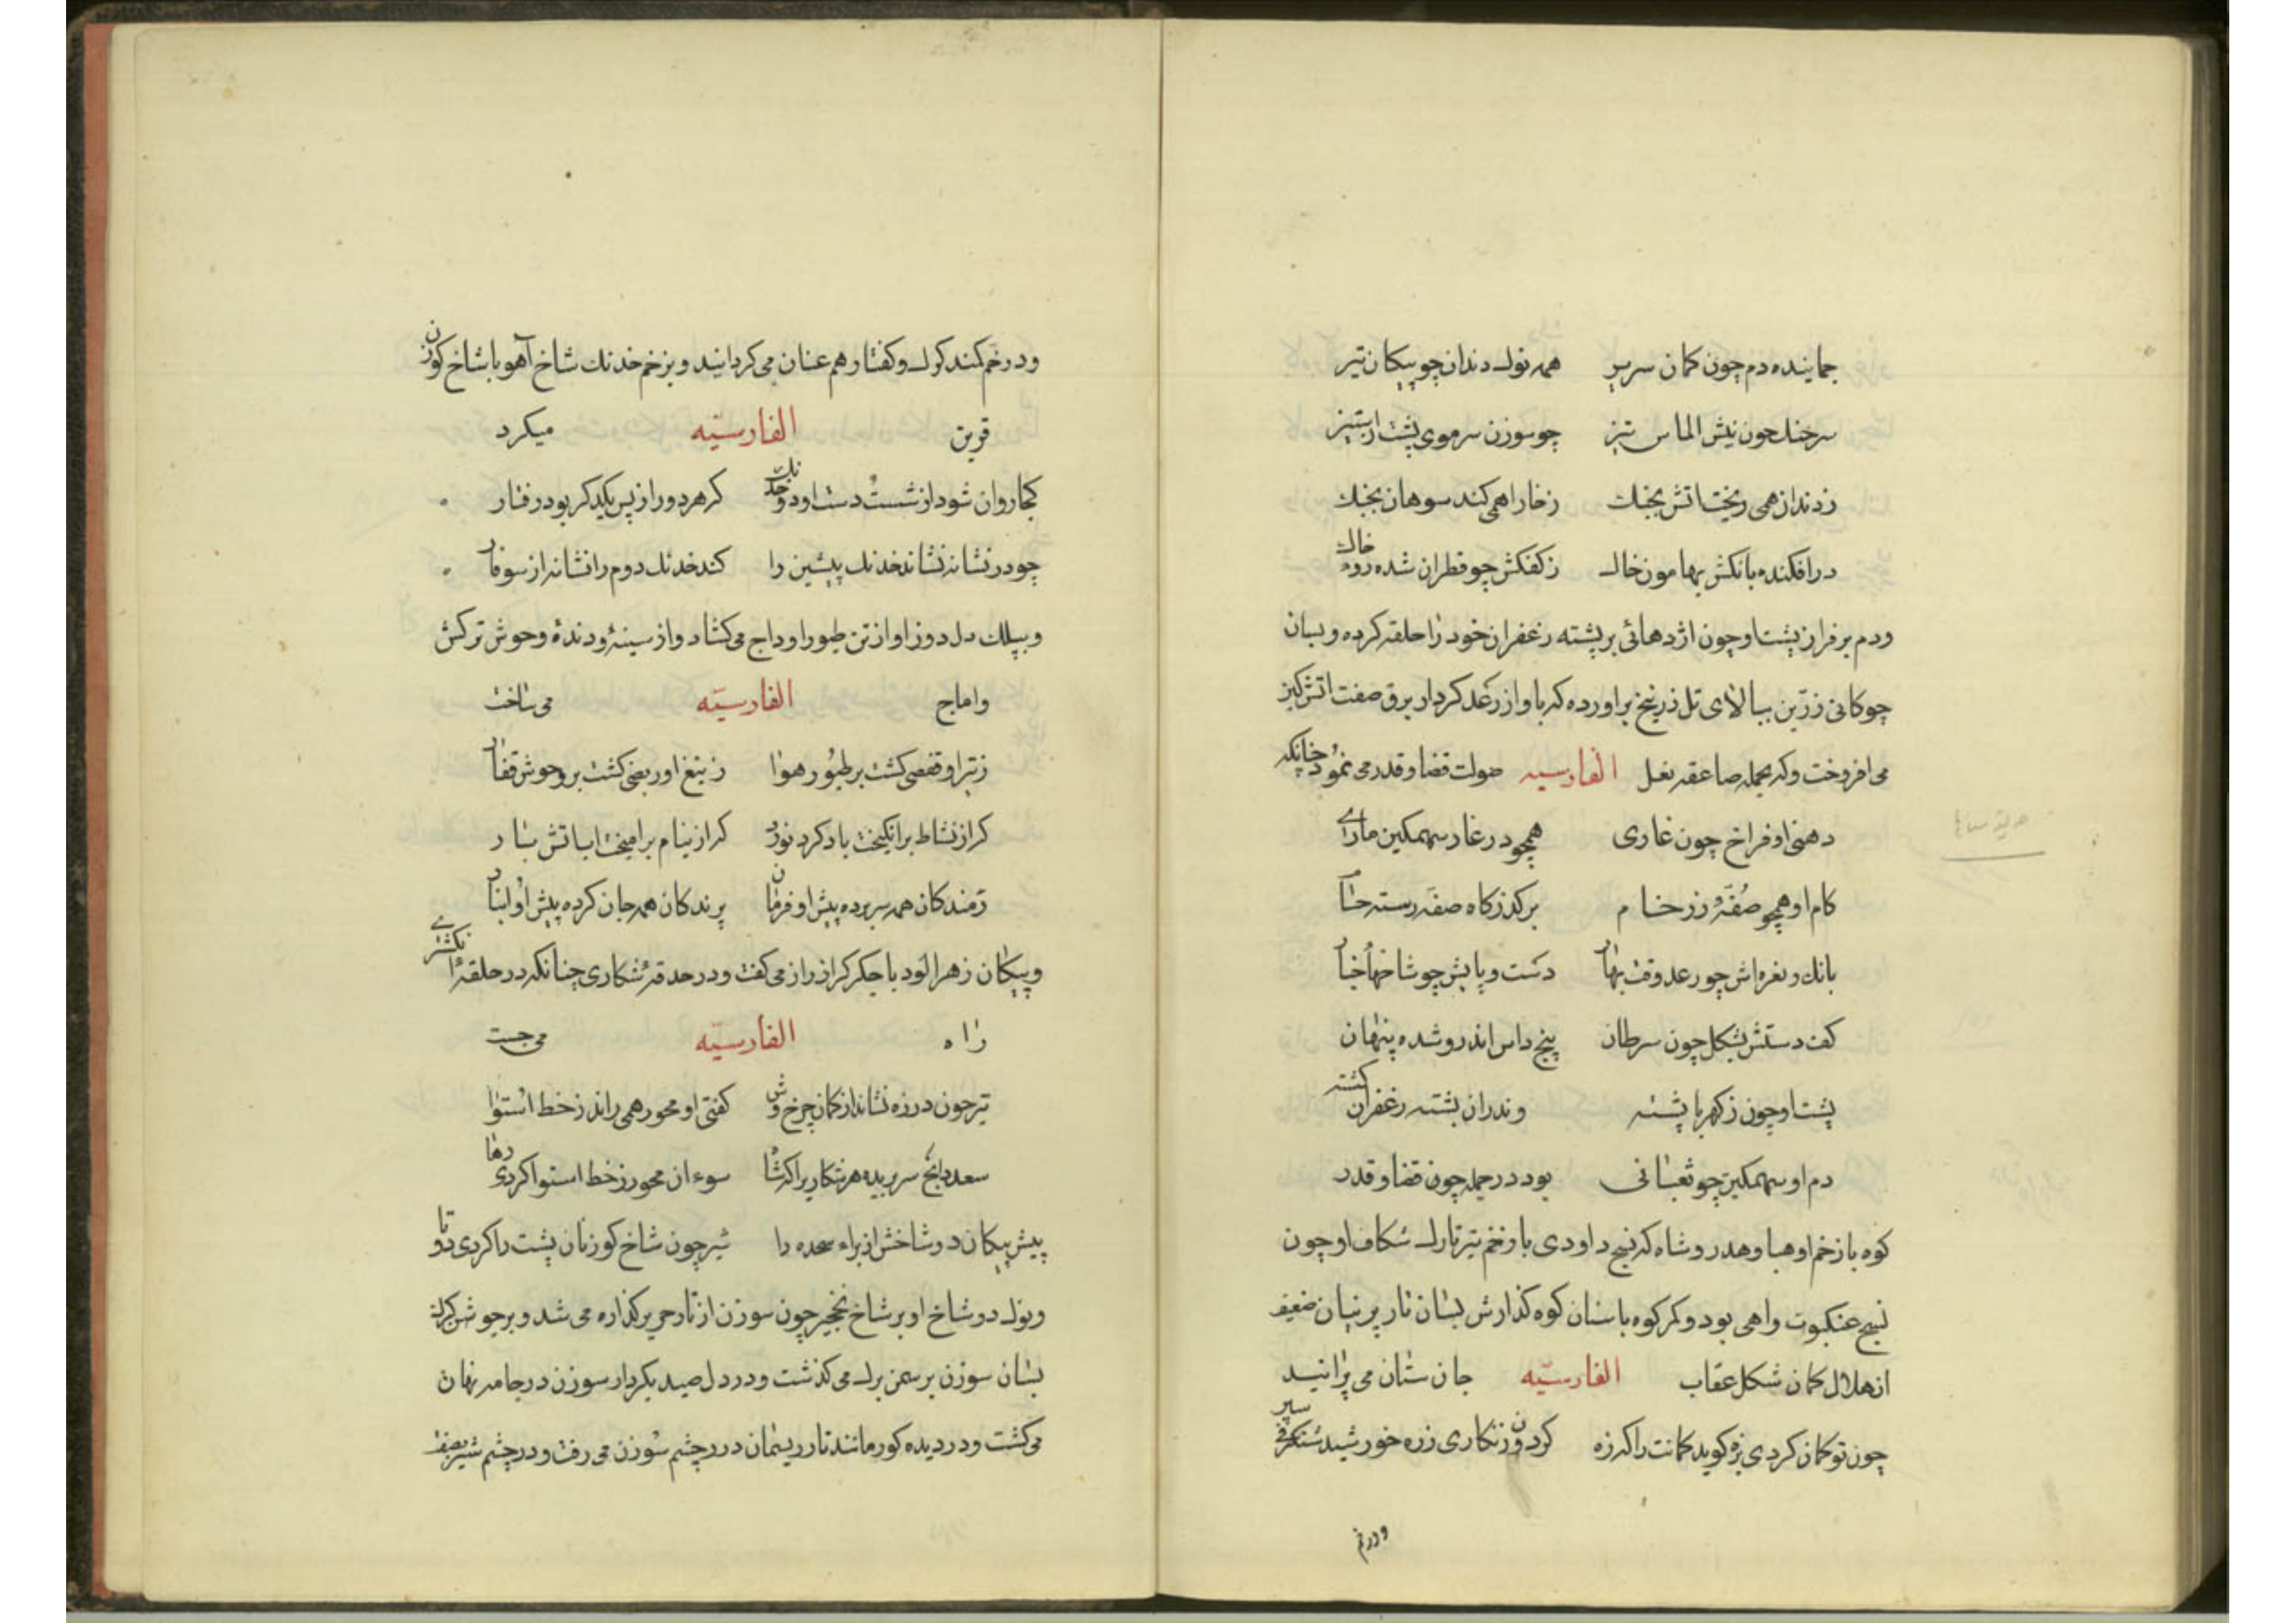 جماینده دم چون کمان سربر همه نوک دندان چو پیکان تیر
سر چنک چون نیش الماس تیز چو سوزن سر موی پشت از ستیز
ز دندان همی ریخت اتش بجنک ز خارا همی کند سوهان بجنک
در افکنده بانکش بهامون خاک ز کفکش چو قطران شده روی خاک
ودم بر فراز پشت او چون اژدهائی بر پشته زعفران خود را حلقه کرده و بسان
چوکانی زرین ببالای تل زرنیخ براورده که باواز رعد کردار برق صفت اتش کین
می افروخت وکه بحمله صاعقه فعل الفارسیه صولت قضا و قدر می نمود چنانکه
دهن او فراخ چون غاری همچو در غار سهمکین ماری
کام او همچو صفهٔ زر خام بر کذرکاه صفه رسته حسام
بانک و نعره اش چو رعد وقت بهار دست و پایش چو شاخهاء چنار
کف دستش بشکل چون سرطان پنج داس اندرو شده پنهان
پشت او چون ز کهربا پشته وندران پشته زعفران کشته
دم او سهمکین چو ثعبانی بود در حمله چون قضا و قدر
کوه با زخم او هبا و هدر و شاه که نسج داودی با زخم تیر تارک شکاف او چون
نسج عنکبوت واهی بود و کمر کوه با سنان کوه کذارش بسان تار پرنیان ضعیف
از هلال کمان شکل عقاب الفارسیه جان ستان می پرانید
چون تو کمان کردی بزه کوید کمانت را که زه کردون زنکاری زره خورشید شنکرفی سپر
ودر خم
ودر خم کمند کرک و کفتار هم عنان می کردانید و بزخم خدنک شاخ آهو با شاخ کوزن
قرین الفارسیه میکرد
کجا روان شود از شست دست او دو خدنک کر هر دو را ز پس یکدکر بود رفتار
چو در نشانه نشاند خدنک پیشین را کند خدنک دوم را نشانه از سوفار
و بیلک دل دوز او از تن طیور اوداج می کشاد و از سینهٔ و دندهٔ وحوش ترکش
واماج الفارسیه می ساخت
ز تیر او قفصی کشت بر طیور هوا ز تیغ او ربضی کشت بر وحوش قفار
که از نشاط برانکیخت باد کرد نورد که از نیام برامیخت اب اتش بار
دمندکان همه سر برده پیش او فرمان پرندکان همه جان کرده پیش او ایثار
و پیکان زهر الود با جکر کراز راز می کفت و در حدقهٔ شکاری چنانکه در حلقهٔ انکشتری
راه الفارسیه می جست
تیر چون در زه نشاند از کمان چرخ وش کفتی او محور همی راند ز خط استوا
سعد ذابح سر بریده هر شکاری را که شاه سوء ان محور ز خط استوا کردی رها
پیش پیکان دو شاخش از براء سجده را شیر چون شاخ کوزنان پشت را کردی دوتا
و نوک دو شاخ او بر شاخ نخجیر چون سوزن از تار حریر کذاره می شد و بر جوشن کرک
بسان سوزن بر سمن برک می کذشت و در دل صید بکردار سوزن در جامه نهان
می کشت و در دیده کور مانند تار ریسمان در چشم سوزن می رفت و در چشم شیر بصفت